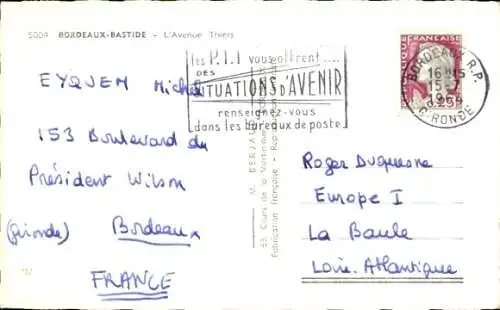 5004 BORDEAUX-BASTIDE - L'Avenue Thiers
les P.T.T vous offrent....
DES
SITUATIONS D'AVENIR
renseignez-vous
dans les bureaux de poste
FRANÇAISE
0,25
BORDEAUX R.P.
16H15
15-7
1964
GIRONDE
EYQUEM Michel
153 Boulevard du
Président Wilson
(Gironde) Bordeaux
FRANCE
63, Cours de la
Fabrication Française -
Roger Duquesne
Europe I
La Baule
Loire-Atlantique